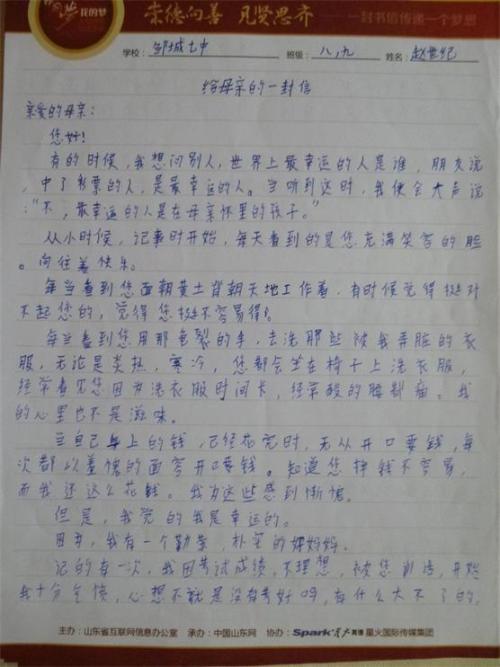 我的梦
崇德向善 见贤思齐 一封书信传递一个梦想
学校：邹城七中 班级：八，九 姓名：赵世纪
给母亲的一封信
亲爱的母亲：
您好！
有的时候，我想问别人，世界上最幸运的人是谁，朋友说
，中了彩票的人，是最幸运的人。当听到这时，我便会大声说
：“不，最幸运的人是在母亲怀里的孩子。”
从小时候，记事时开始，每天看到的是您充满笑容的脸
。向往着快乐。
每当看到您面朝黄土背朝天地工作着，有时候觉得挺对
不起您的，觉得您挺不容易得。
每当看到您用那龟裂的手，去洗那些被我弄脏的衣
服，无论是炎热，寒冷，您都会坐在椅子上洗衣服，
经常看见您因为洗衣服时间长，经常酸的胳膊痛。我
的心里也不是滋味。
当自己身上的钱，已经花完时，无从开口要钱，每
次都以羞愧的面容开口要钱。知道您挣钱不容易，
而我还这么花钱。我为这些感到惭愧。
但是，我觉的我是幸运的。
因为，我有一个勤劳，朴实的好妈妈。
记的有一次，我因考试成绩，不理想，被您训话，开始
我十分气愤，心想不就是没有考好吗，有什么大不了的，
主办：山东省互联网信息办公室 承办：中国山东网 协办：Spark 英语 星火国际传媒集团